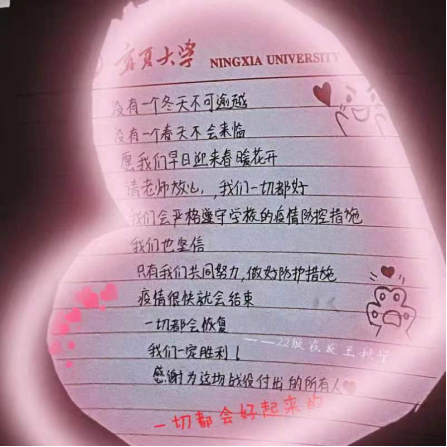 宁夏大学 NINGXIA UNIVERSITY
没有一个冬天不可逾越
没有一个春天不会来临
愿我们早日迎来春暖花开
请老师放心,我们一切都好
我们会严格遵守学校的疫情防控措施
我们也坚信
只有我们共同努力,做好防护措施
疫情很快就会结束
一切都会恢复
——22级
我们一定胜利!
感谢为这场战役付出的所有人
一切都会好起来的